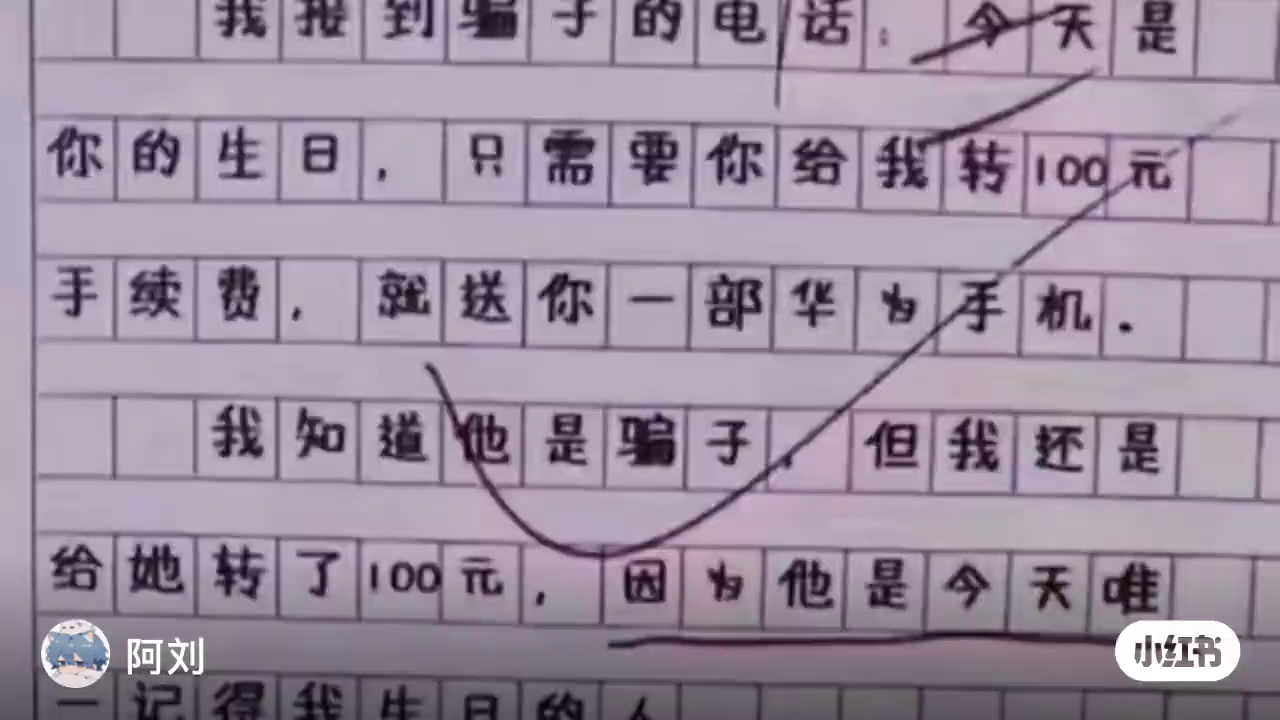 我接到骗子的电话：今天是
你的生日，只需要你给我转100元
手续费，就送你一部华为手机.
我知道他是骗子，但我还是
给她转了100元，因为他是今天唯
一记得我生日的人
阿刘
小红书